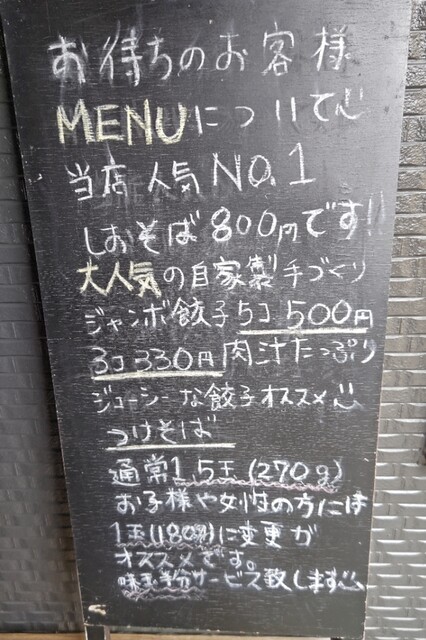 お待ちのお客様
MENUについて
当店人気NO.1
しおそば800円です!!
大人気の自家製手づくり
ジャンボ餃子5コ 500円
3コ 330円肉汁たっぷり
ジューシーな餃子オススメ
つけそば
通常1.5玉(270g)
お子様や女性の方には
1玉(180g)に変更が
オススメです。
味玉半分サービス致します